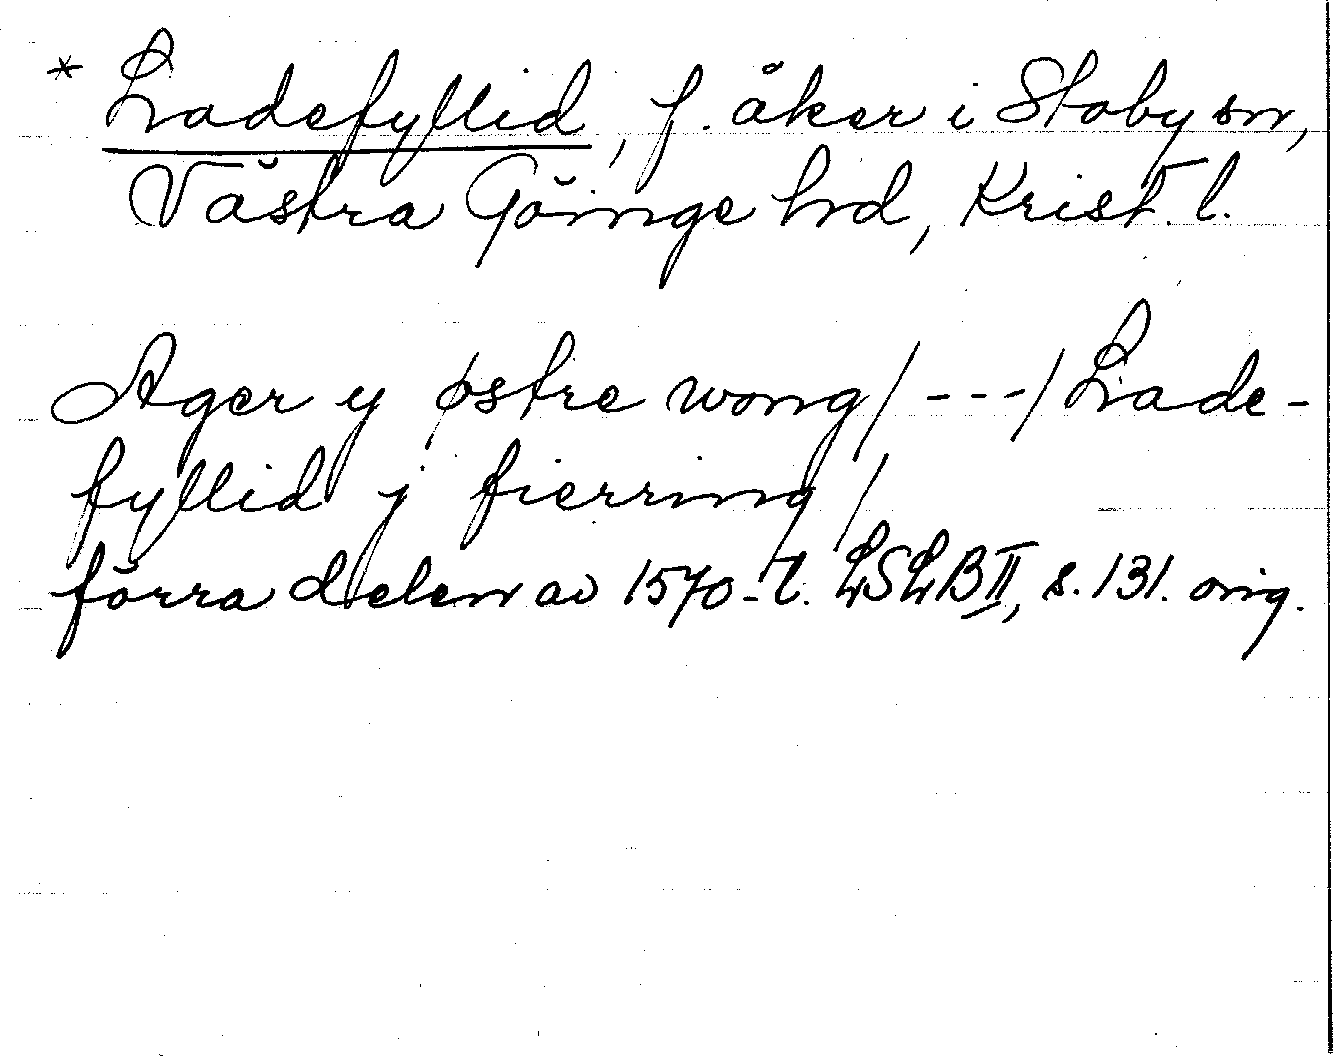 * Ladefyllid, f. åker i Stoby sn,
Västra Göinge hd, Krist. l.
Ager y østre wong / --- / Lade-
fyllid j fierring /
förra delen av 1570-t. LSLB II, s. 131. orig.